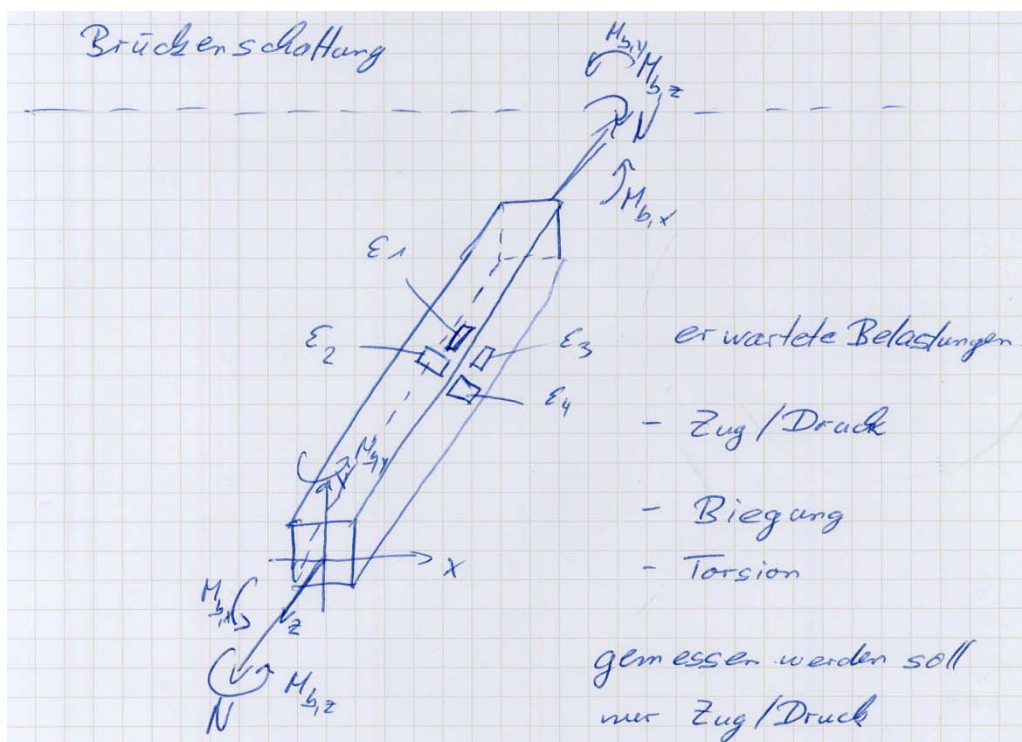 Brückenschaltung
M_b,y
M_b,z
N
M_b,x
ε1
ε2
ε3
ε4
erwartete Belastungen
- Zug/Druck
- Biegung
- Torsion
M_b,y
x
M_b,x
z
M_b,z
N
gemessen werden soll
nur Zug/Druck